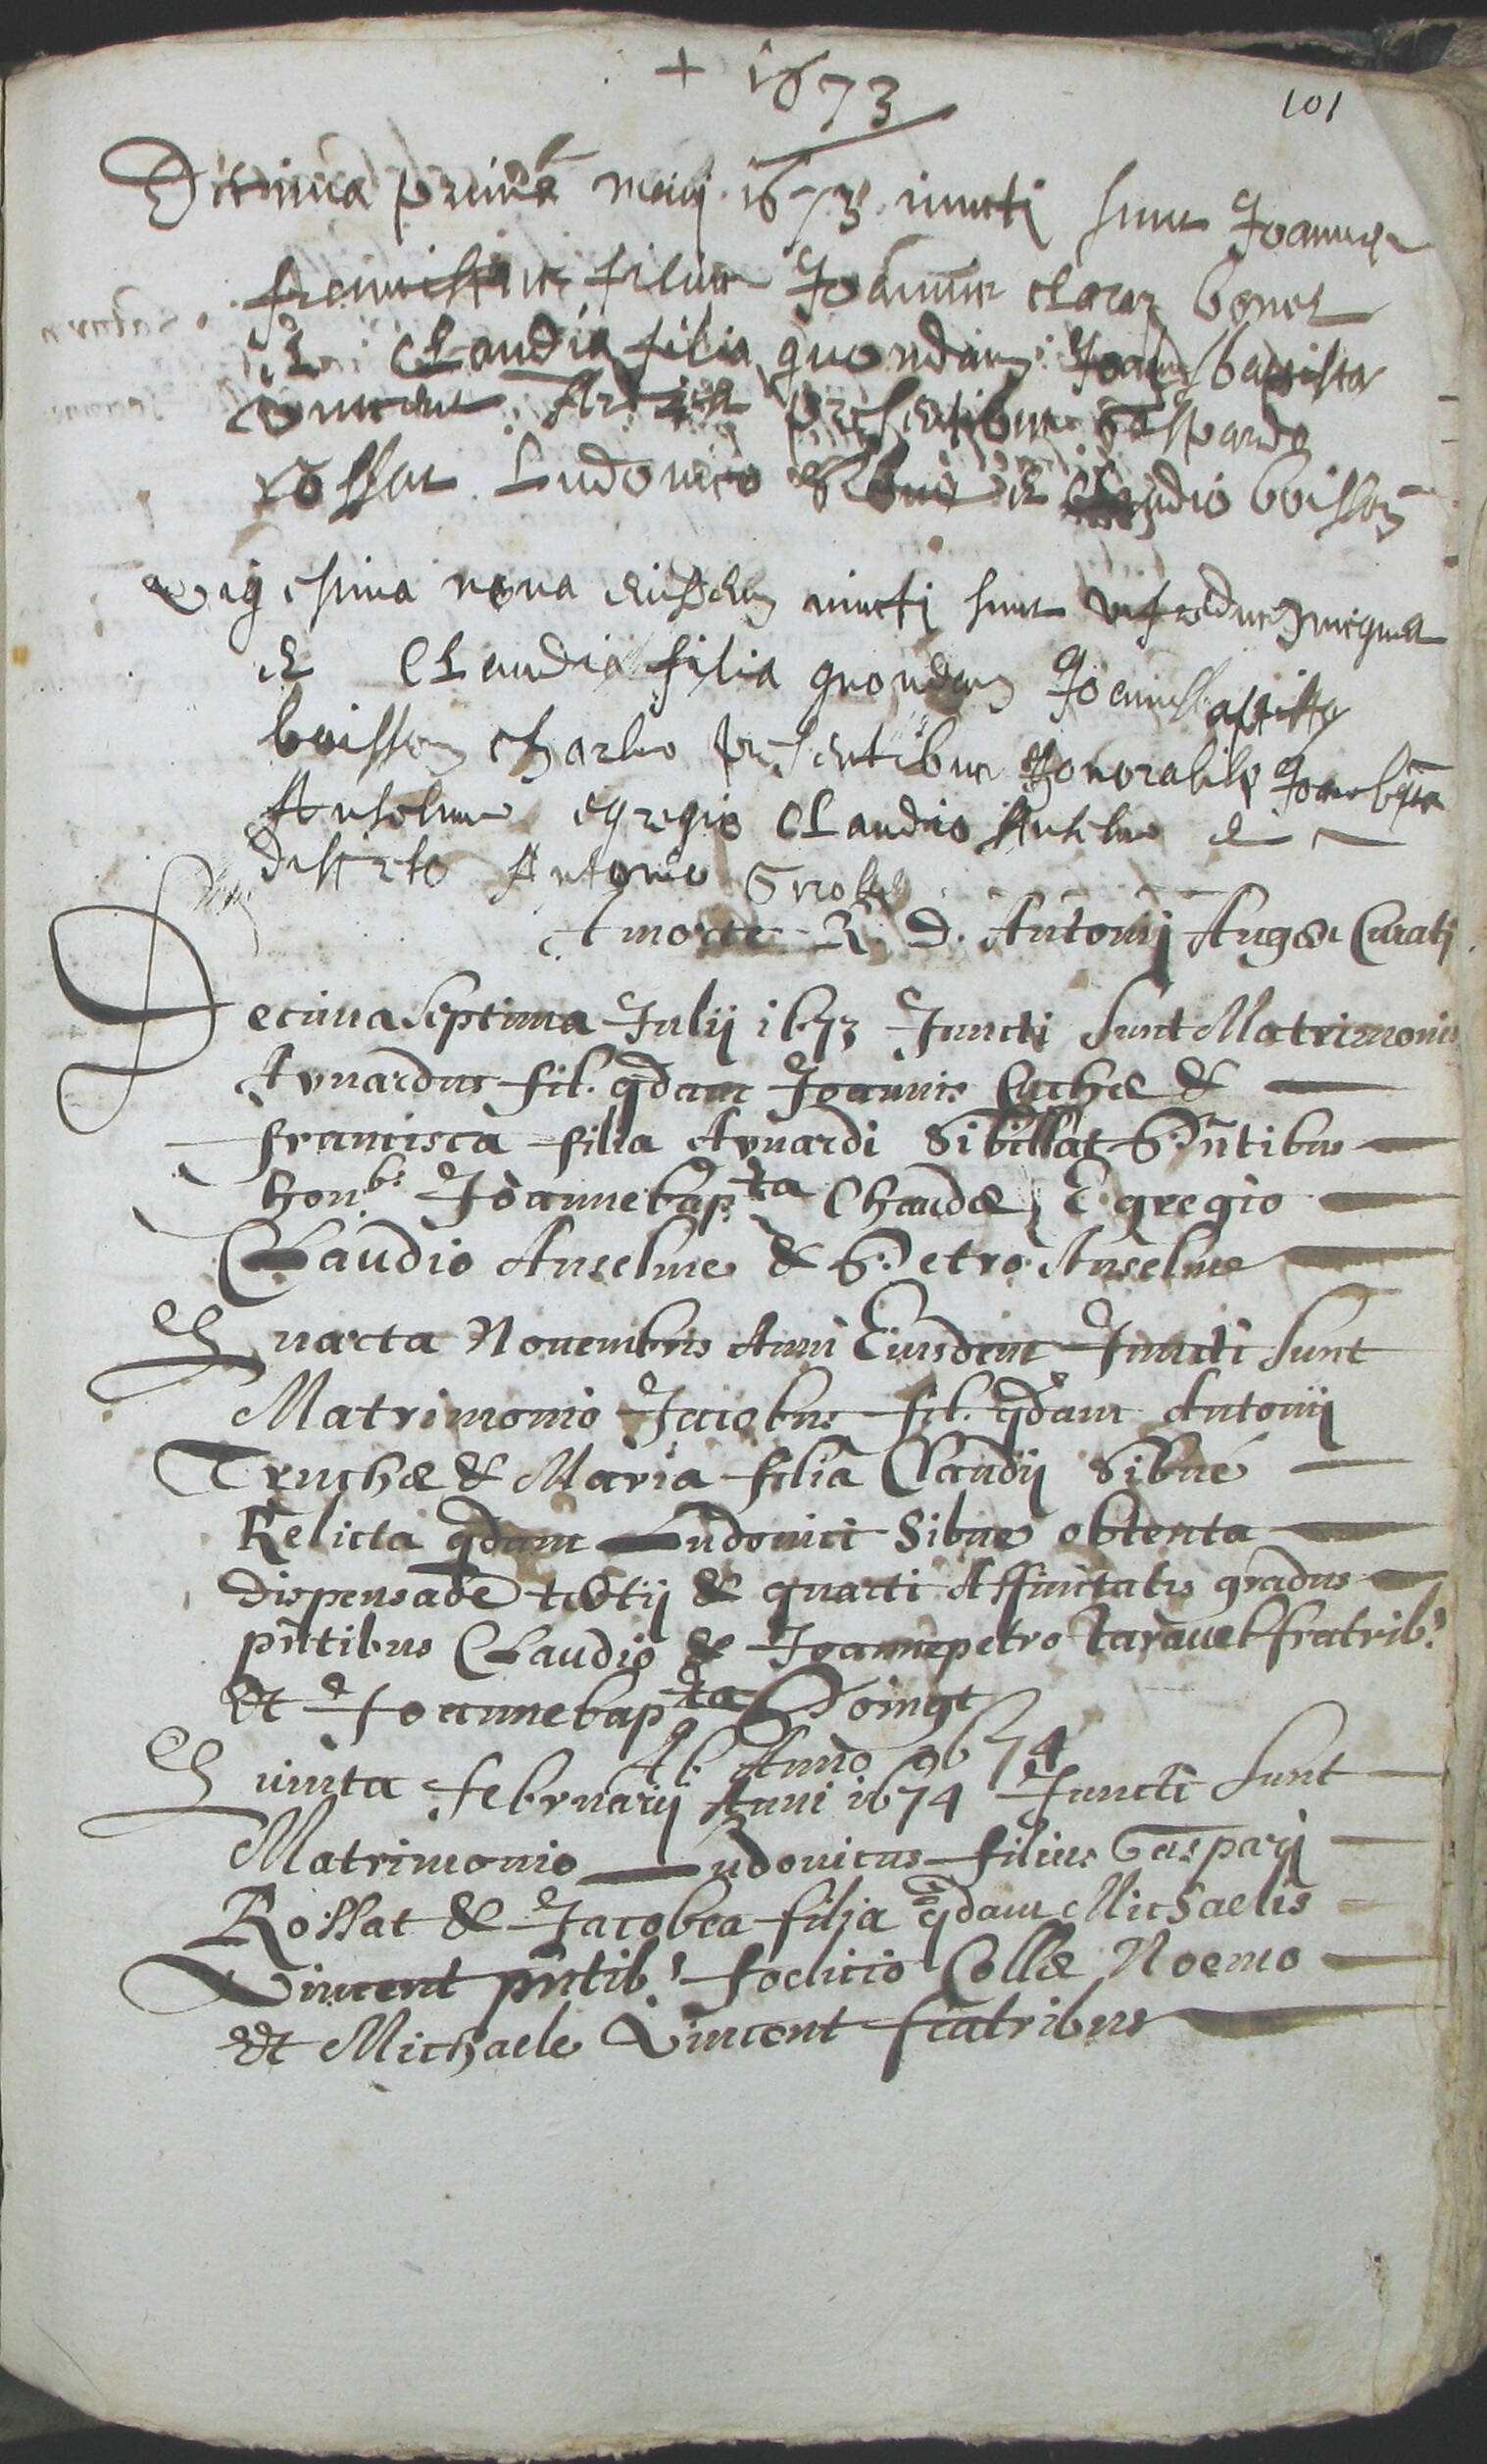 + 1673
101
prima maij 1673 iuncti sunt Joannes
franciscus filius Joannis clarez bonet
& Claudia filia quondam Joanisbaptista
vincent presentibus Gaspardo
rossat Ludovico & Claudio boisson
vigesima nona eiusdem iuncti sunt
& Claudia filia quondam Joannisbaptista
boisson charlo presentibus honorabile Joanebpta
Anselme egregio Claudio Anselme &
discreto Antonio
A morte R. D. Antonij Auger Curati
Decima septima Julij 1673 Juncti sunt Matrimonio
Aymardus fil. qdam Joannis Cuchæ &
francisca filia Aymardi Sibillat Pñtibus
hon.b: Joannebap.ta Chaudæ, Egregio
Claudio Anselme & Petro Anselme
Quarta Nouembris Anni Eiusdem Juncti sunt
Matrimonio Jacobus fil. qdam Antonij
Truchæ & Maria filia Claudij Sibué
Relicta qdam Ludovici Sibue obtenta
dispensaõe tertij & quarti Affinitatis gradus
pñtibus Claudio & Joannepetro taravel fratrib?
et Joannebapta Doingt
Ab Anno 1674
Quinta februarij Anni 1674 Juncti sunt
Matrimonio Ludouicus filius Gasparij
Rossat & Jacobea filia qdam Michaelis
Vincent pñtib? foelicio Collæ Noemo
et Michaele Vincent fratribus